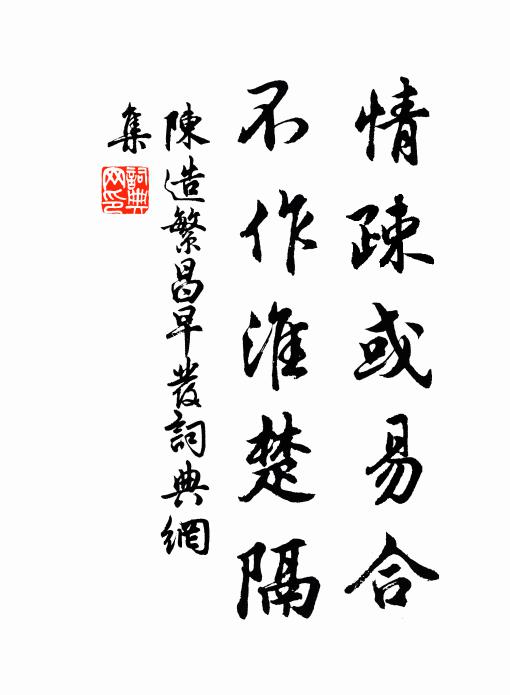 情疎或易合
不作淮楚隔
陳造繁昌早發詞典網
集
詞典
网印